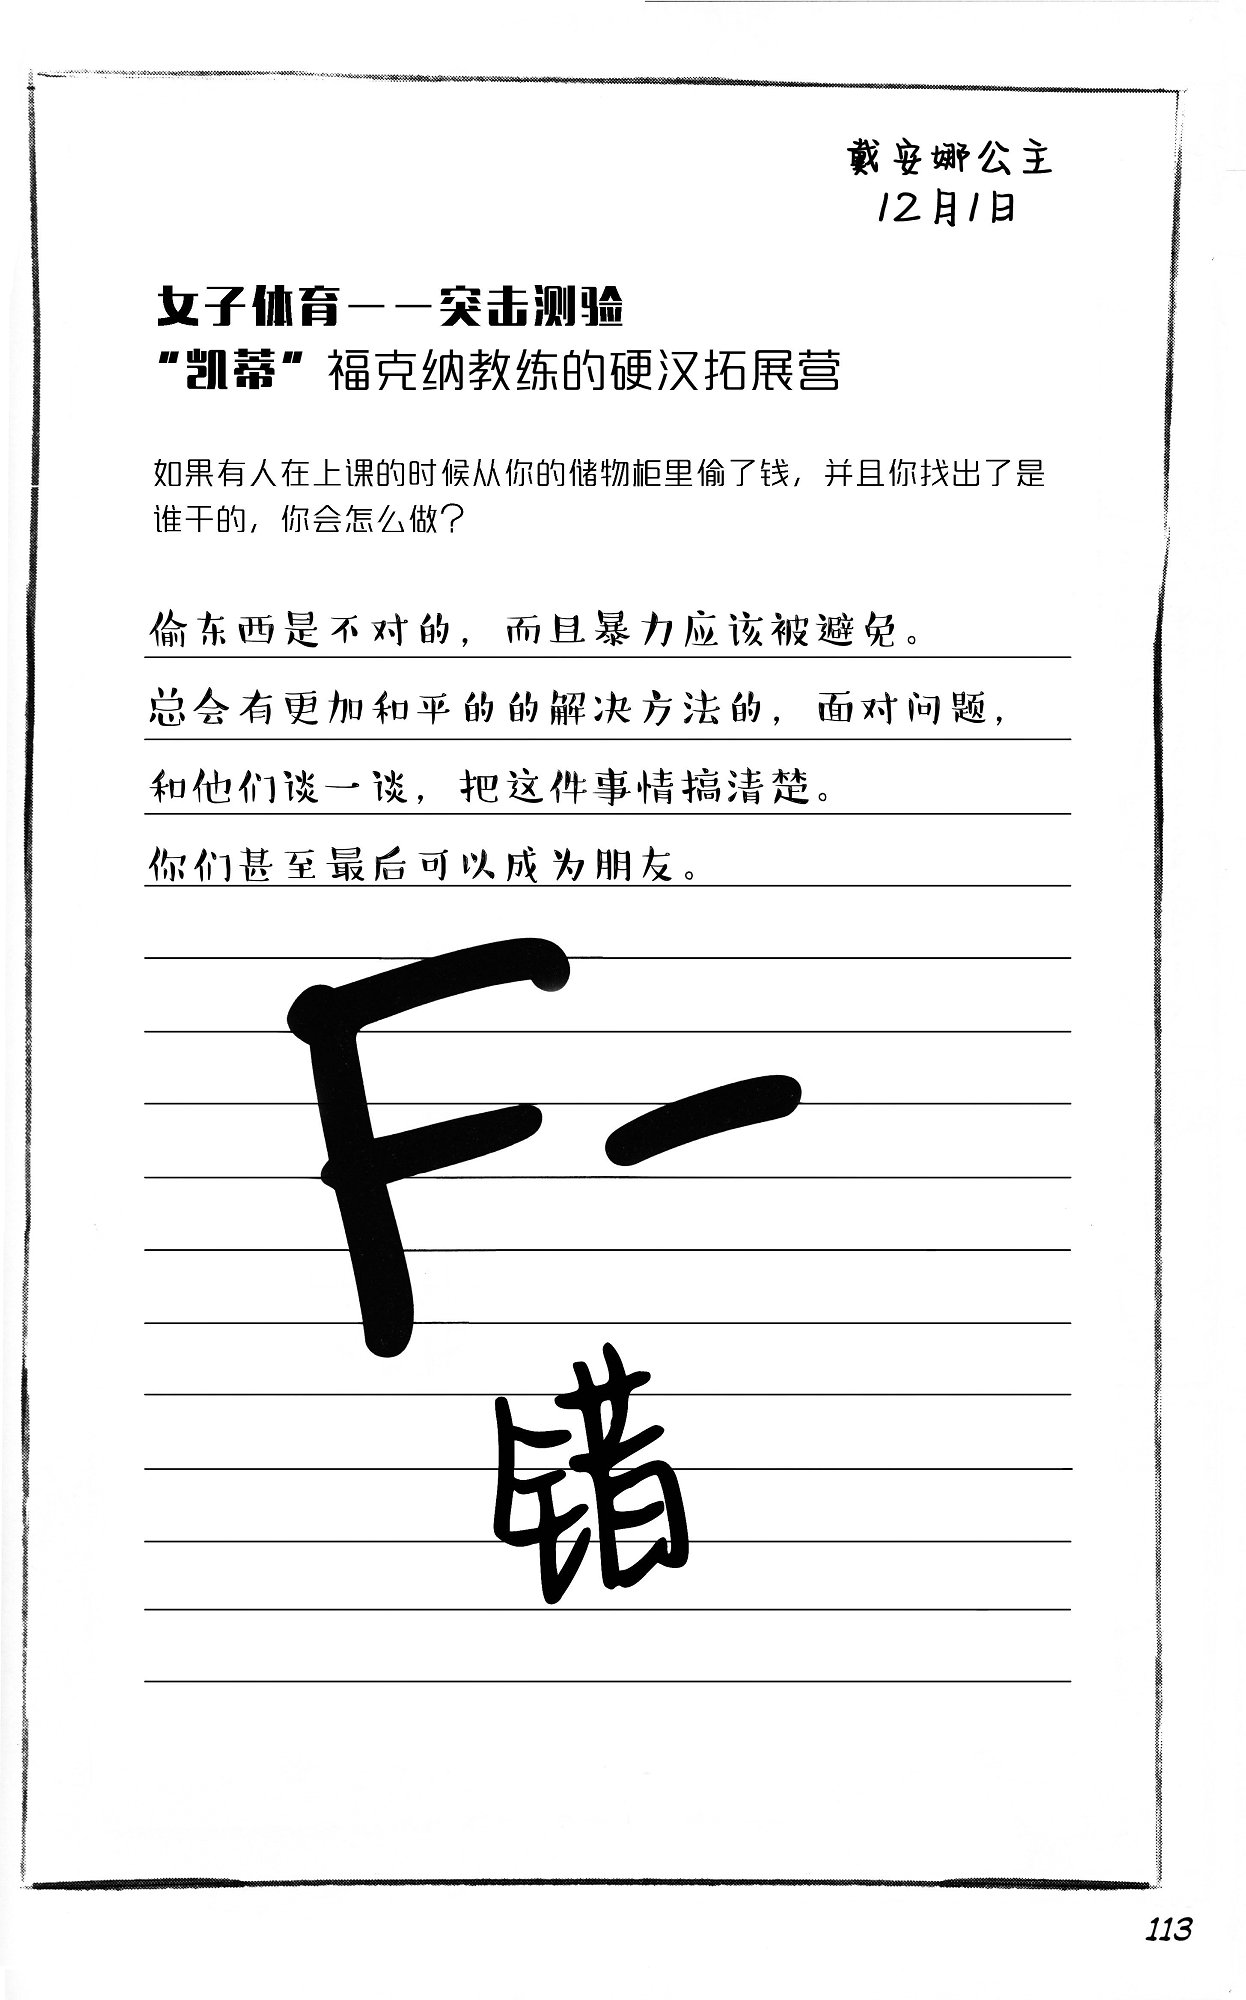 戴安娜公主
12月1日
女子体育——突击测验
“凯蒂”福克纳教练的硬汉拓展营
如果有人在上课的时候从你的储物柜里偷了钱，并且你找出了是
谁干的，你会怎么做？
偷东西是不对的，而且暴力应该被避免。
总会有更加和平的的解决方法的，面对问题，
和他们谈一谈，把这件事情搞清楚。
你们甚至最后可以成为朋友。
F-
错
113